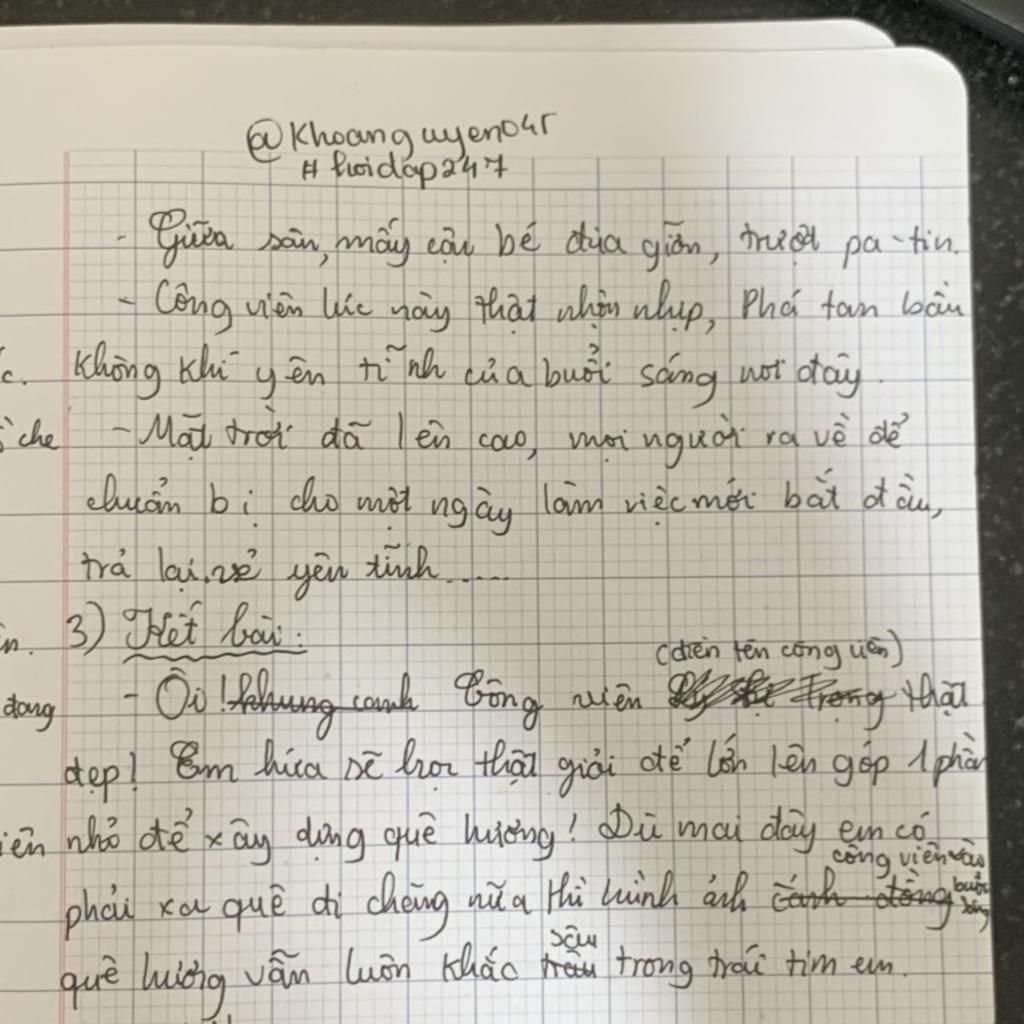 @Khoanguyen045
#hoidap247
- Giữa sân, mấy cậu bé đùa giỡn, trượt pa-tin.
- Công viên lúc này thật nhộn nhịp, Phá tan bầu
c. không khí yên tĩnh của buổi sáng nơi đây.
che - Mặt trời đã lên cao, mọi người ra về để
chuẩn bị cho một ngày làm việc mới bắt đầu,
trả lại vẻ yên tĩnh.....
3) Kết bài:
(điền tên công viên)
dang - Ôi! khung cảnh Công viên Trong thật
đẹp! Em hứa sẽ học thật giỏi để lớn lên góp 1 phần
nhỏ để xây dựng quê hương! Dù mai đây em có
công viên vào
phải xa quê đi chăng nữa thì hình ảnh cánh đồng buổi sáng
sâu
quê hương vẫn luôn khắc trong trái tim em.